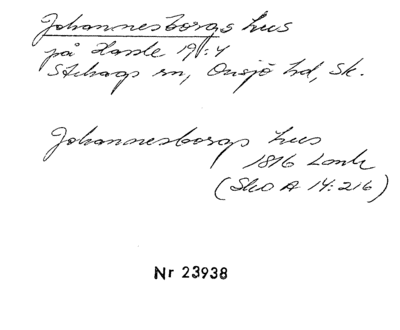 Johannesborgs hus
på Hassle 19/1:4
Stehags sn, Onsjö hd, Sk.
Johannesborgs hus
1816 Lantm
(Sko A 14:216)
Nr 23938